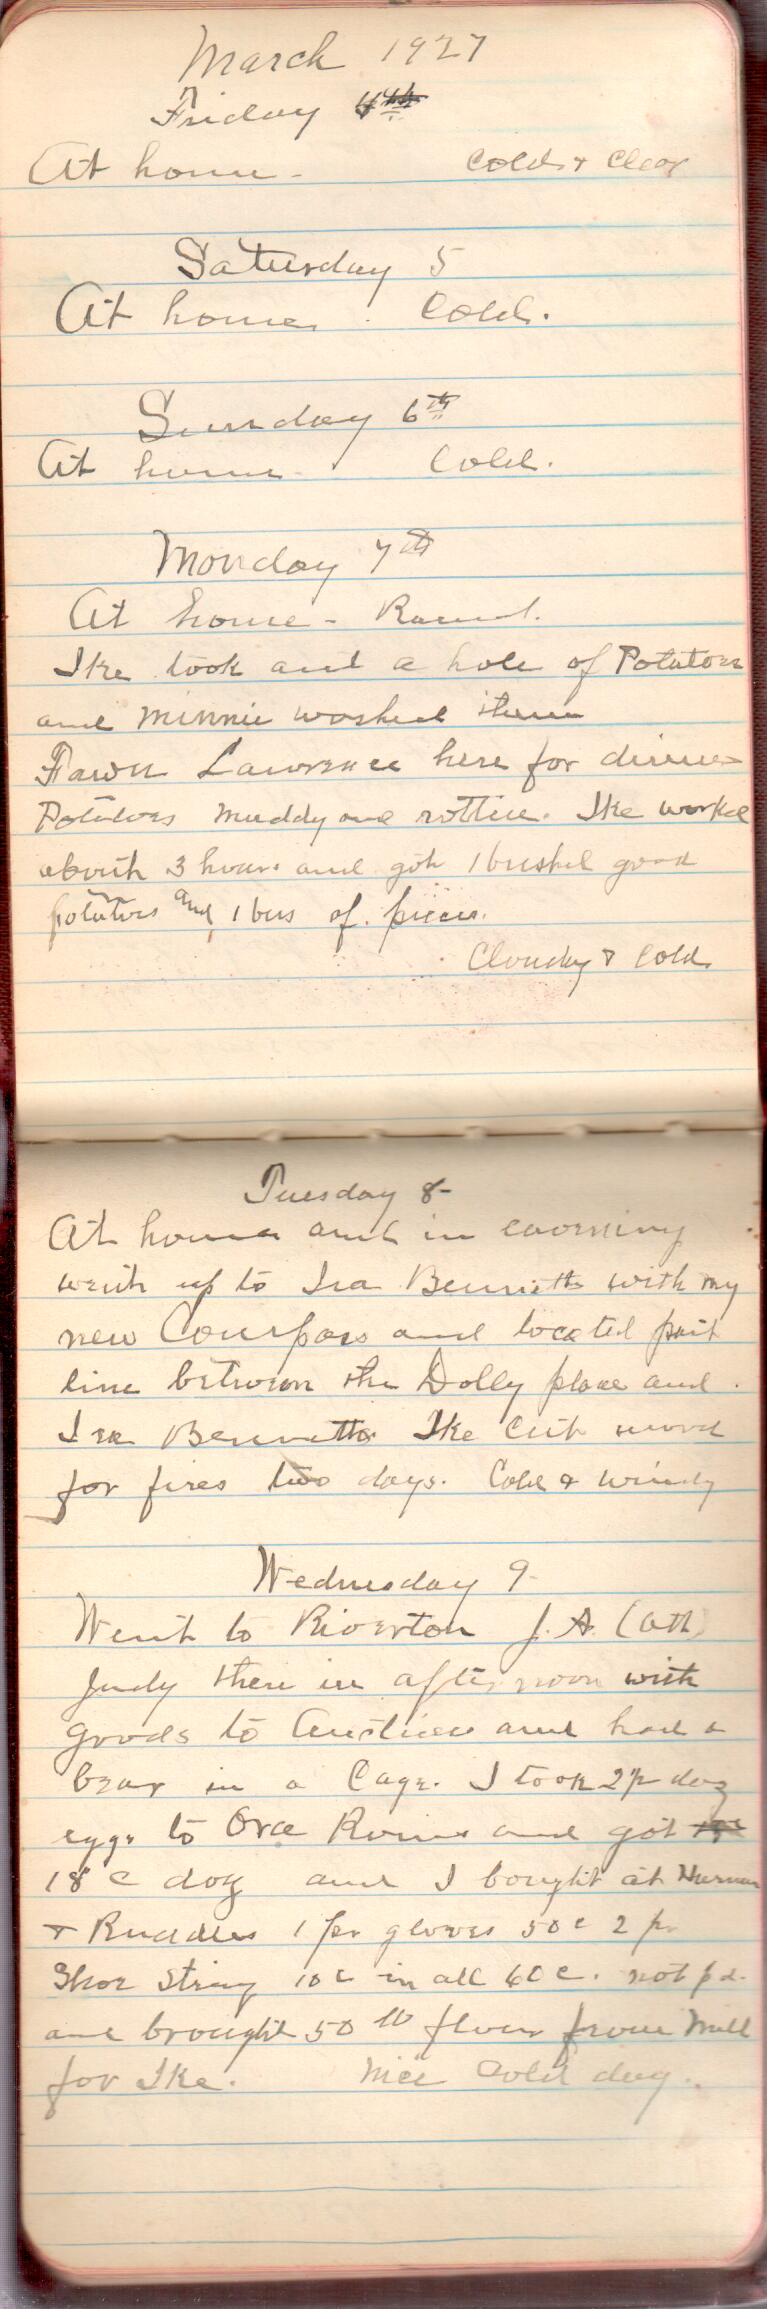 March 1927
Friday 4th
At home - Cold & Clear
Saturday 5
At home. Cold.
Sunday 6th
At home Cold.
Monday 7th
At home - Raind.
Ike took out a hole of Potatoes
and Minnie washed them
Fawn Lawrence here for dinner
Potatoes muddy and rotten. Ike worked
about 3 hours and got 1 bushel good
potatoes and 1 bus of pieces.
Cloudy & Cold.
Tuesday 8-
At home and in evening
went up to Ira Bennetts with my
new Compass and located part
line between the Dolly place and
Ira Bennetts Ike Cut wood
for fires two days. Cold & Windy
Wednesday 9-
Went to Riverton J. A. (Ott)
Judy there in afternoon with
goods to Auction and had a
bear in a Cage. I took 2½ doz
eggs to Ora and got
18 c doz and I bought at
& Ruddles 1 pr gloves 50c 2 pr
Shoe String 10c in all 60c. not pd.
and brought 50 lb flour from Mill
for Ike. Nice Cold day.